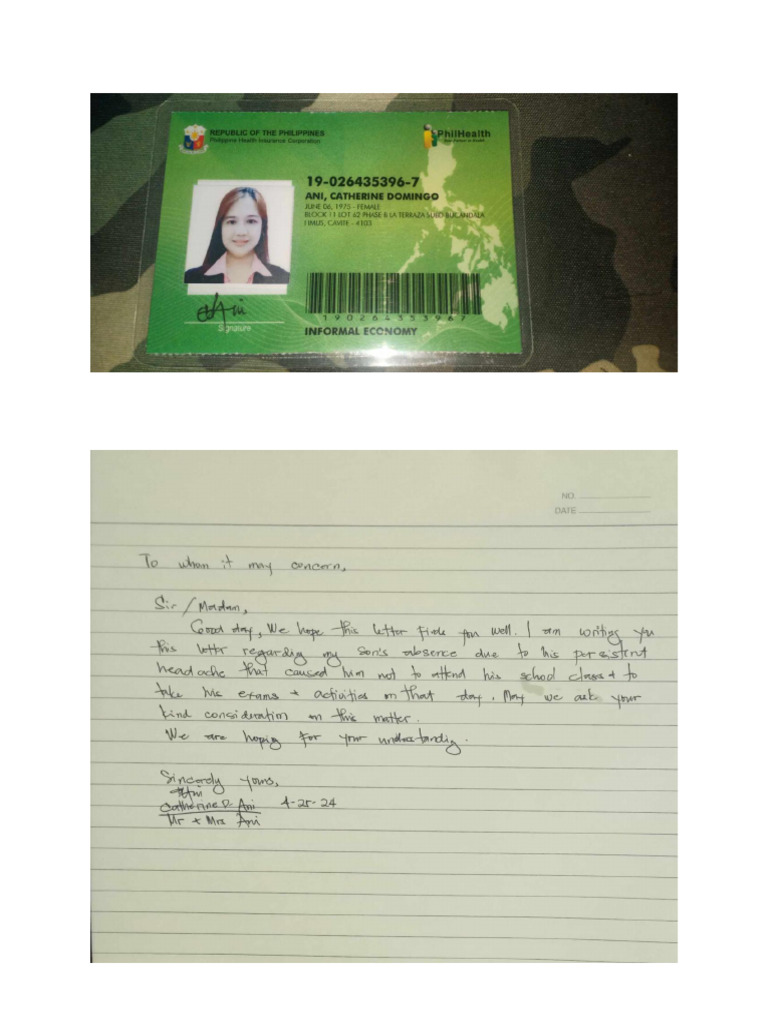 REPUBLIC OF THE PHILIPPINES
Philippine Health Insurance Corporation
PhilHealth
Your Partner in Health
19-026435396-7
ANI, CATHERINE DOMINGO
JUNE 06, 1975 - FEMALE
BLOCK 11 LOT 62 PHASE 8 LA TERRAZA SUBD BUCANDALA
IMUS, CAVITE - 4103
190264353967
Signature
INFORMAL ECONOMY
NO.
DATE
To whom it may concern,
Sir/Madam,
Good day, We hope this letter finds you well. I am writing you
this letter regarding my son's absence due to his persistent
headache that caused him not to attend his school class + to
take his exams + activities on that day. May we ask your
kind consideration on this matter.
We are hoping for your understanding.
Sincerely yours,
Catherine D. Ani 4-25-24
Mr + Mrs Ani